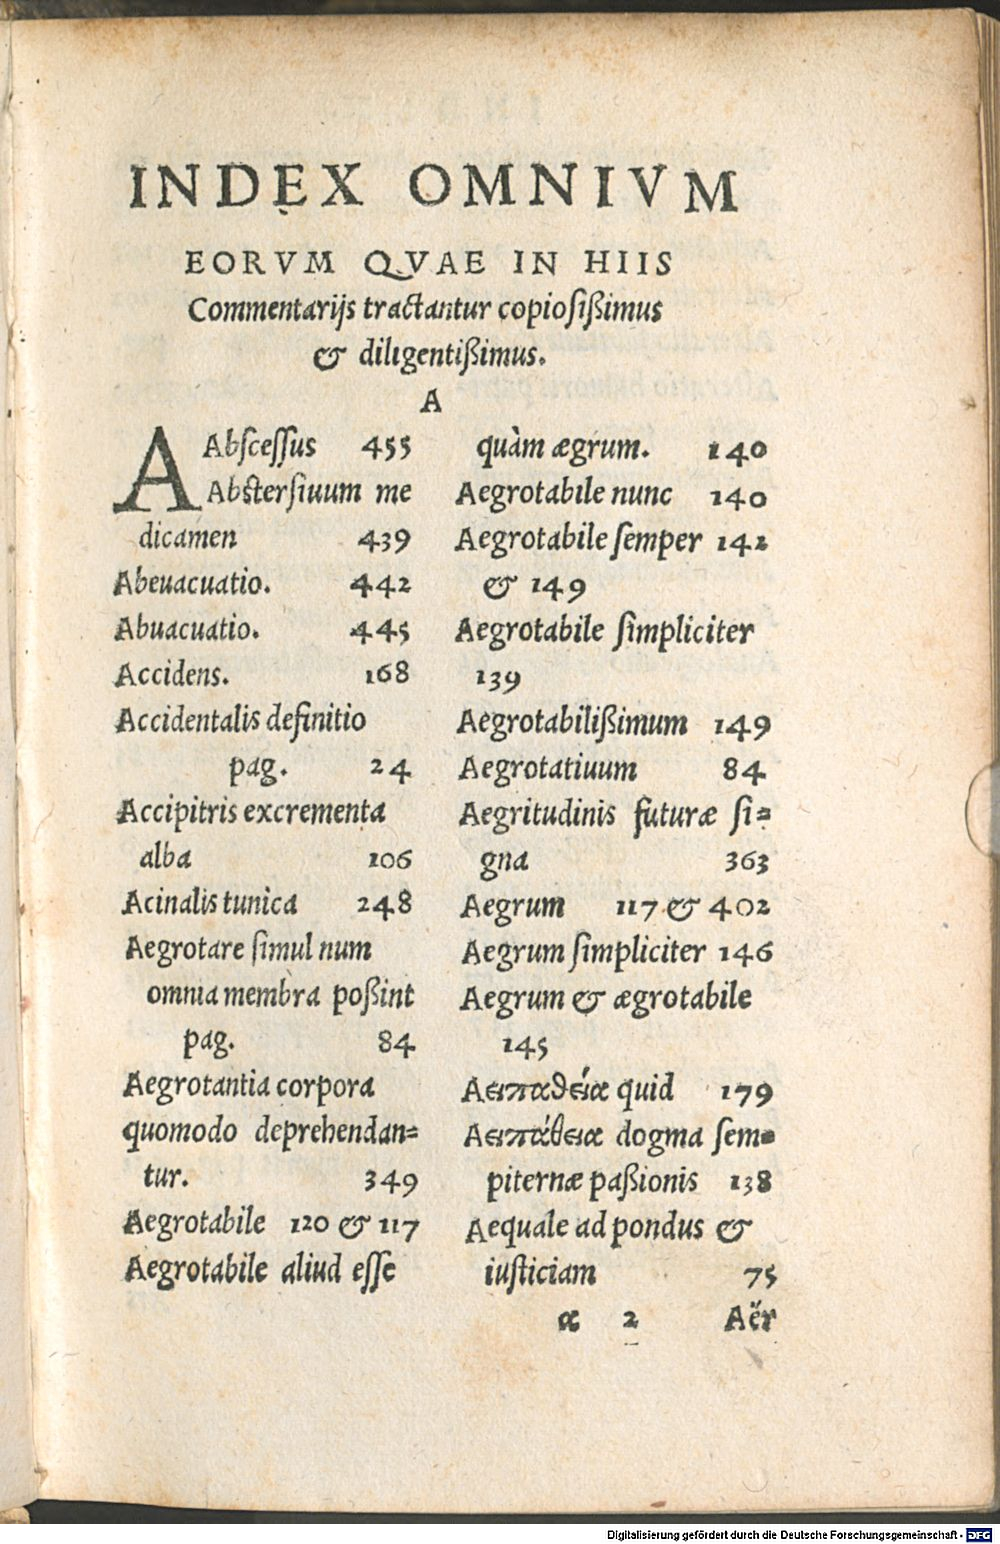 INDEX OMNIVM
EORVM QVAE IN HIIS
Commentarijs tractantur copiosißimus
& diligentißimus.
A
A Abſceſſus 455
Abſterſiuum me
dicamen 439
Abeuacuatio. 442
Abuacuatio. 445
Accidens. 168
Accidentalis definitio
pag. 24
Accipitris excrementa
alba 106
Acinalis tunica 248
Aegrotare ſimul num
omnia membra poßint
pag. 84
Aegrotantia corpora
quomodo deprehendan=
tur. 349
Aegrotabile 120 & 117
Aegrotabile aliud eſſe
quàm ægrum. 140
Aegrotabile nunc 140
Aegrotabile ſemper 142
& 149
Aegrotabile ſimpliciter
139
Aegrotabilißimum 149
Aegrotatiuum 84
Aegritudinis futuræ ſi=
gna 363
Aegrum 117 & 402
Aegrum ſimpliciter 146
Aegrum & ægrotabile
145
Αειπαθεία quid 179
Αειπάθεια dogma ſem=
piternæ paßionis 138
Aequale ad pondus &
iuſticiam 75
α 2 Aër
Digitalisierung gefördert durch die Deutsche Forschungsgemeinschaft - DFG